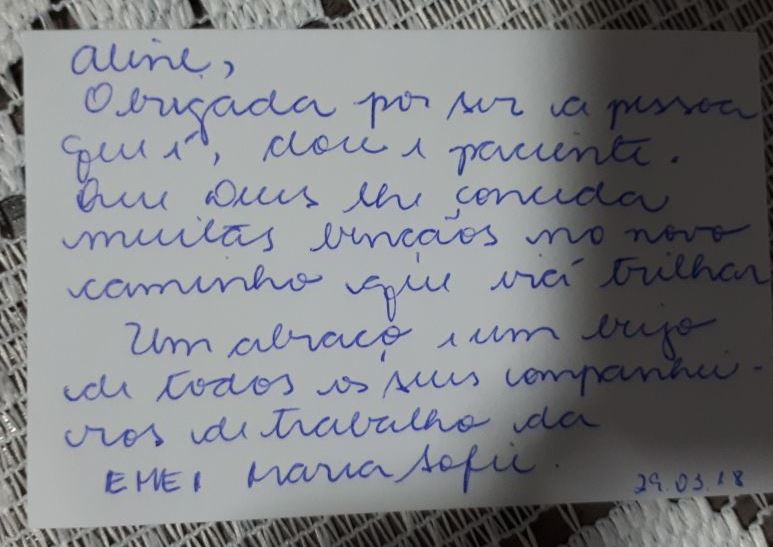 Aline,
Obrigada por ser a pessoa
que é, doce e paciente.
Que Deus lhe conceda
muitas bençãos no novo
caminho que irá trilhar
Um abraço e um beijo
de todos os seus companhei-
ros de trabalho da
EMEI Maria Sofie.
29.03.18